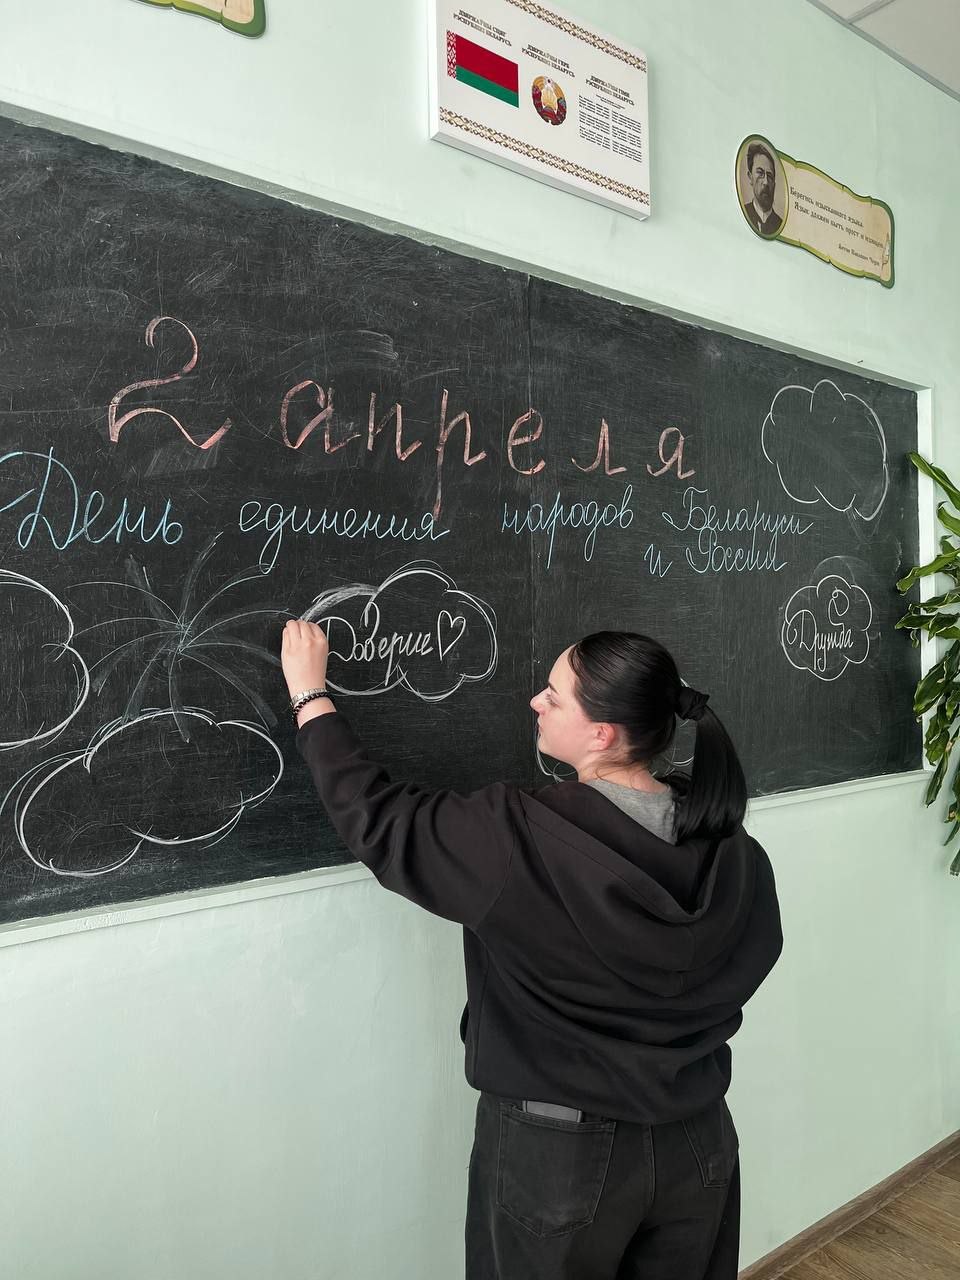 ДЗЯРЖАЎНЫ СЦЯГ
РЭСПУБЛІКІ БЕЛАРУСЬ
ДЗЯРЖАЎНЫ ГЕРБ
РЭСПУБЛІКІ БЕЛАРУСЬ
ДЗЯРЖАЎНЫ ГІМН
РЭСПУБЛІКІ БЕЛАРУСЬ
Берегись изысканного языка.
Язык должен быть прост и изящен.
Антон Павлович Чехов
2 апреля
День единения народов Беларуси
и России
Доверие
Дружба